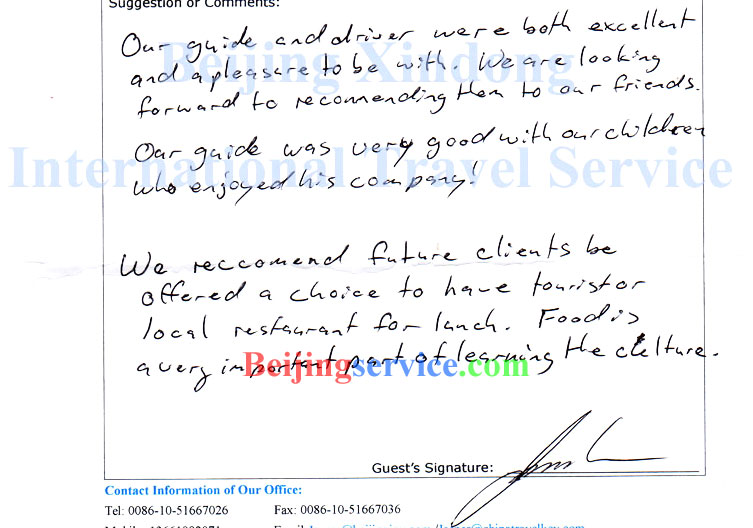 Suggestion or Comments:
Our guide and driver were both excellent
and a pleasure to be with. We are looking
forward to recomending them to our friends.
Our guide was very good with our children
who enjoyed his company!
We reccomend future clients be
offered a choice to have tourist or
local restaurant for lunch. Food is
a very important part of learning the culture.
Beijing Xindong
International Travel Service
Beijingservice.com
Guest's Signature:
Contact Information of Our Office:
Tel: 0086-10-51667026 Fax: 0086-10-51667036